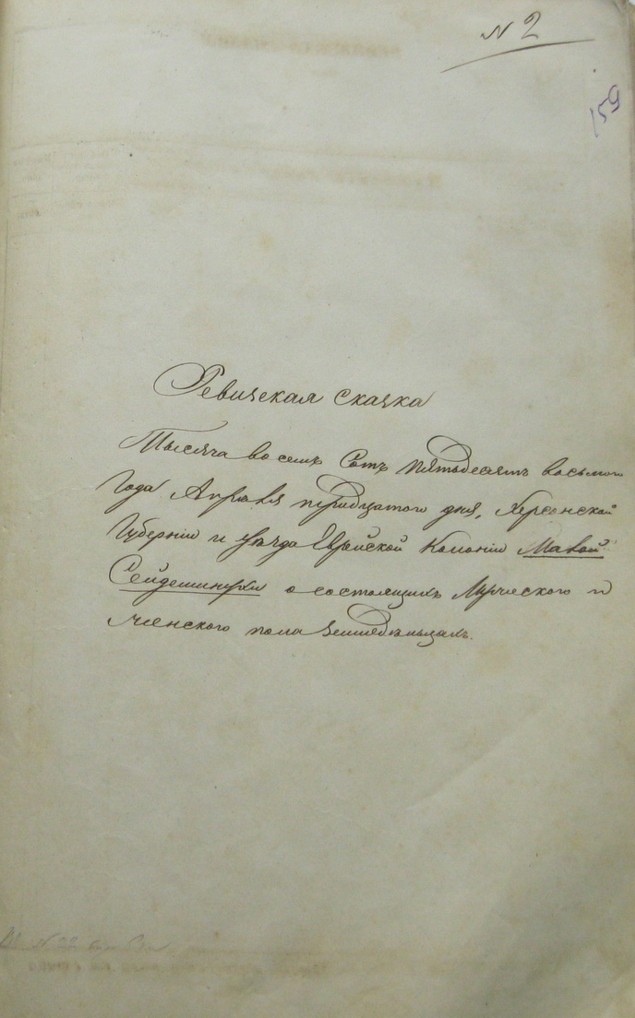 № 2
159
Ревизская сказка
Тысяча восемь Сотъ пятьдесятъ восьмого
Года Апреля тридцатого дня, Херсонской
Губернии и уезда Еврейской Колонии Малой
Сейдеминухи о состоящихъ Мужеского и
женского пола земледельцахъ.